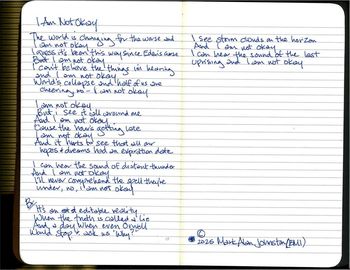 I Am Not Okay
The world is changing for the worse and
I am not okay
I guess it's been this way since Eden's curse
But I am not okay
I can't believe the things I'm hearing
and I am not okay
World's collapse and half of us are
cheering no - I am not okay
I am not okay
But I see it all around me
And I am not okay
Cause the hour's getting late
I am not okay
And it hurts to see that all our
hopes & dreams had an expiration date
I can hear the sound of distant thunder
And I am not okay
I'll never comprehend the spell they're
under, no, I am not okay
Br:
It's an editable reality
When the truth is called a lie
And a day when even Orwell
Would stop & ask us "Why?"
I see storm clouds on the horizon
And I am not okay
I can hear the sound of the last
uprising and I am not okay
©
2025 Mark Alan Johnston (BMI)